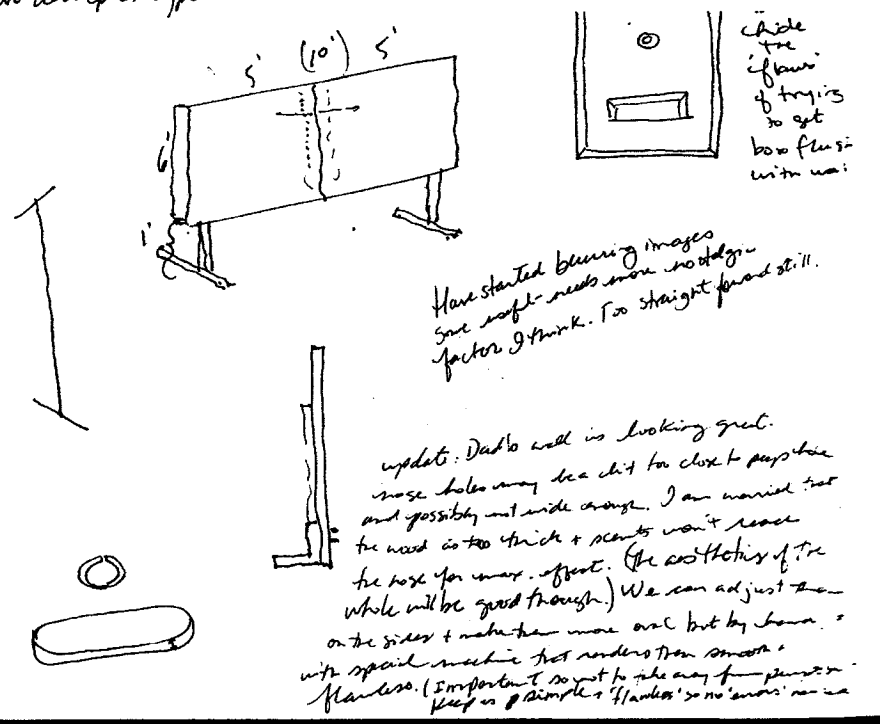 5' (10') 5'
6'
1'
hide
the
'flaws'
of trying
to get
box flush
with wa
Have started blurring images
some useful - needs more nostalgic
factor I think. Too straight forward still.
update: Dad's wall is looking great.
nose holes may be a bit too close to peephole
and possibly not wide enough. I am worried that
the wood is too thick + scents won't reach
the nose for max. effect. (The aesthetics of the
whole will be good though.) We can adjust them
on the sides + make them more oval but by
with special machine that renders them smooth +
flawless. (Important so not to take away from
keep as simple + 'flawless' so no 'errors'